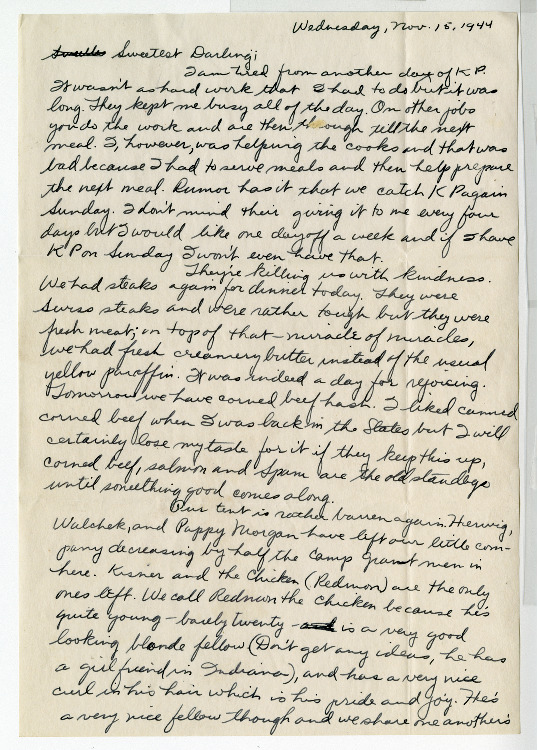 Wednesday, Nov. 15, 1944
Sweetest Darling;
I am tired from another day of K P.
It wasn't as hard work that I had to do but it was
long. They kept me busy all of the day. On other jobs
you do the work and are then through till the next
meal. I, however, was helping the cooks and that was
bad because I had to serve meals and then help prepare
the next meal. Rumor has it that we catch K P again
Sunday. I don't mind their giving it to me every four
days but I would like one day off a week and if I have
K P on Sunday I won't even have that.
They're killing us with kindness.
We had steaks again for dinner today. They were
swiss steaks and were rather tough but they were
fresh meat; on top of that - miracle of miracles,
we had fresh creamery butter instead of the usual
yellow paraffin. It was indeed a day for rejoicing.
Tomorrow we have corned beef hash. I liked canned
corned beef when I was back in the States but I will
certainly lose my taste for it if they keep this up,
corned beef, salmon and Spam are the old standbys
until something good comes along.
Our tent is rather barren again. Herwig,
Walchek, and Pappy Morgan have left our little com-
pany decreasing by half the Camp Grant men in
here. Kisner and the Chicken (Redmon) are the only
ones left. We call Redmon the Chicken because he's
quite young - barely twenty - is a very good
looking blonde fellow (Don't get any ideas, he has
a girlfriend in Indiana), and has a very nice
curl in his hair which is his pride and joy. He's
a very nice fellow though and we share one another's